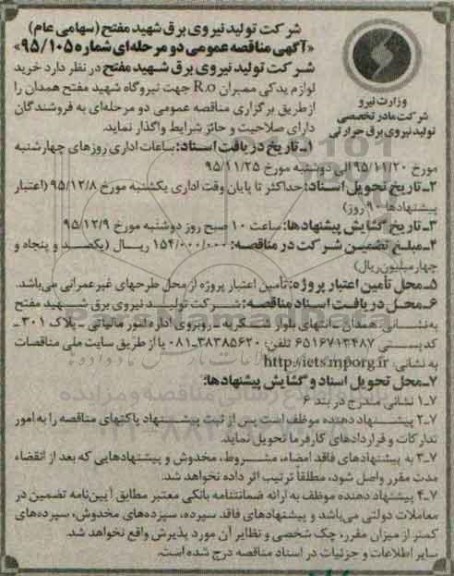 شرکت تولید نیروی برق شهید مفتح (سهامی عام)
«آگهی مناقصه عمومی دو مرحله‌ای شماره ۹۵/۱۰۵»
وزارت نیرو
شرکت مادر تخصصی
تولید نیروی برق حرارتی
شرکت تولید نیروی برق شهید مفتح در نظر دارد خرید
لوازم یدکی ممبران R.o جهت نیروگاه شهید مفتح همدان را
از طریق برگزاری مناقصه عمومی دو مرحله‌ای به فروشندگان
دارای صلاحیت و حائز شرایط واگذار نماید.
۱ـ تاریخ دریافت اسناد: ساعات اداری روزهای چهارشنبه
مورخ ۹۵/۱۱/۲۰ الی دوشنبه مورخ ۹۵/۱۱/۲۵
۲ـ تاریخ تحویل اسناد: حداکثر تا پایان وقت اداری یکشنبه مورخ ۹۵/۱۲/۸ (اعتبار
پیشنهادها ۹۰ روز)
۳ـ تاریخ گشایش پیشنهادها: ساعت ۱۰ صبح روز دوشنبه مورخ ۹۵/۱۲/۹
۴ـ مبلغ تضمین شرکت در مناقصه: ۱۵۴/۰۰۰/۰۰۰ ریال (یکصد و پنجاه و
چهار میلیون ریال)
۵ـ محل تأمین اعتبار پروژه: تأمین اعتبار پروژه از محل طرحهای غیر عمرانی می‌باشد.
۶ـ محل دریافت اسناد مناقصه: شرکت تولید نیروی برق شهید مفتح
به نشانی: همدان ـ انتهای بلوار شکریه ـ روبروی اداره امور مالیاتی ـ پلاک ۳۰۱ ـ
کد پستی ۶۵۱۶۷۱۳۴۸۷ تلفن: ۳۸۳۸۵۶۲۰ـ۰۸۱ یا از طریق سایت ملی مناقصات
به نشانی: http://iets.mporg.ir
۷ـ محل تحویل اسناد و گشایش پیشنهادها:
۷ـ۱ نشانی مندرج در بند ۶
۷ـ۲ پیشنهاد دهنده موظف است پس از ثبت پیشنهاد پاکتهای مناقصه را به امور
تدارکات و قراردادهای کارفرما تحویل نماید.
۷ـ۳ به پیشنهادهای فاقد امضاء، مشروط، مخدوش و پیشنهادهایی که بعد از انقضاء
مدت مقرر واصل شود، مطلقاً ترتیب اثر داده نخواهد شد.
۷ـ۴ پیشنهاد دهنده موظف به ارائه ضمانتنامه بانکی معتبر مطابق آیین‌نامه تضمین در
معاملات دولتی می‌باشد و پیشنهادهای فاقد سپرده، سپرده‌های مخدوش، سپرده‌های
کمتر از میزان مقرر، چک شخصی و نظایر آن مورد پذیرش واقع نخواهد شد.
سایر اطلاعات و جزئیات در اسناد مناقصه درج شده است.